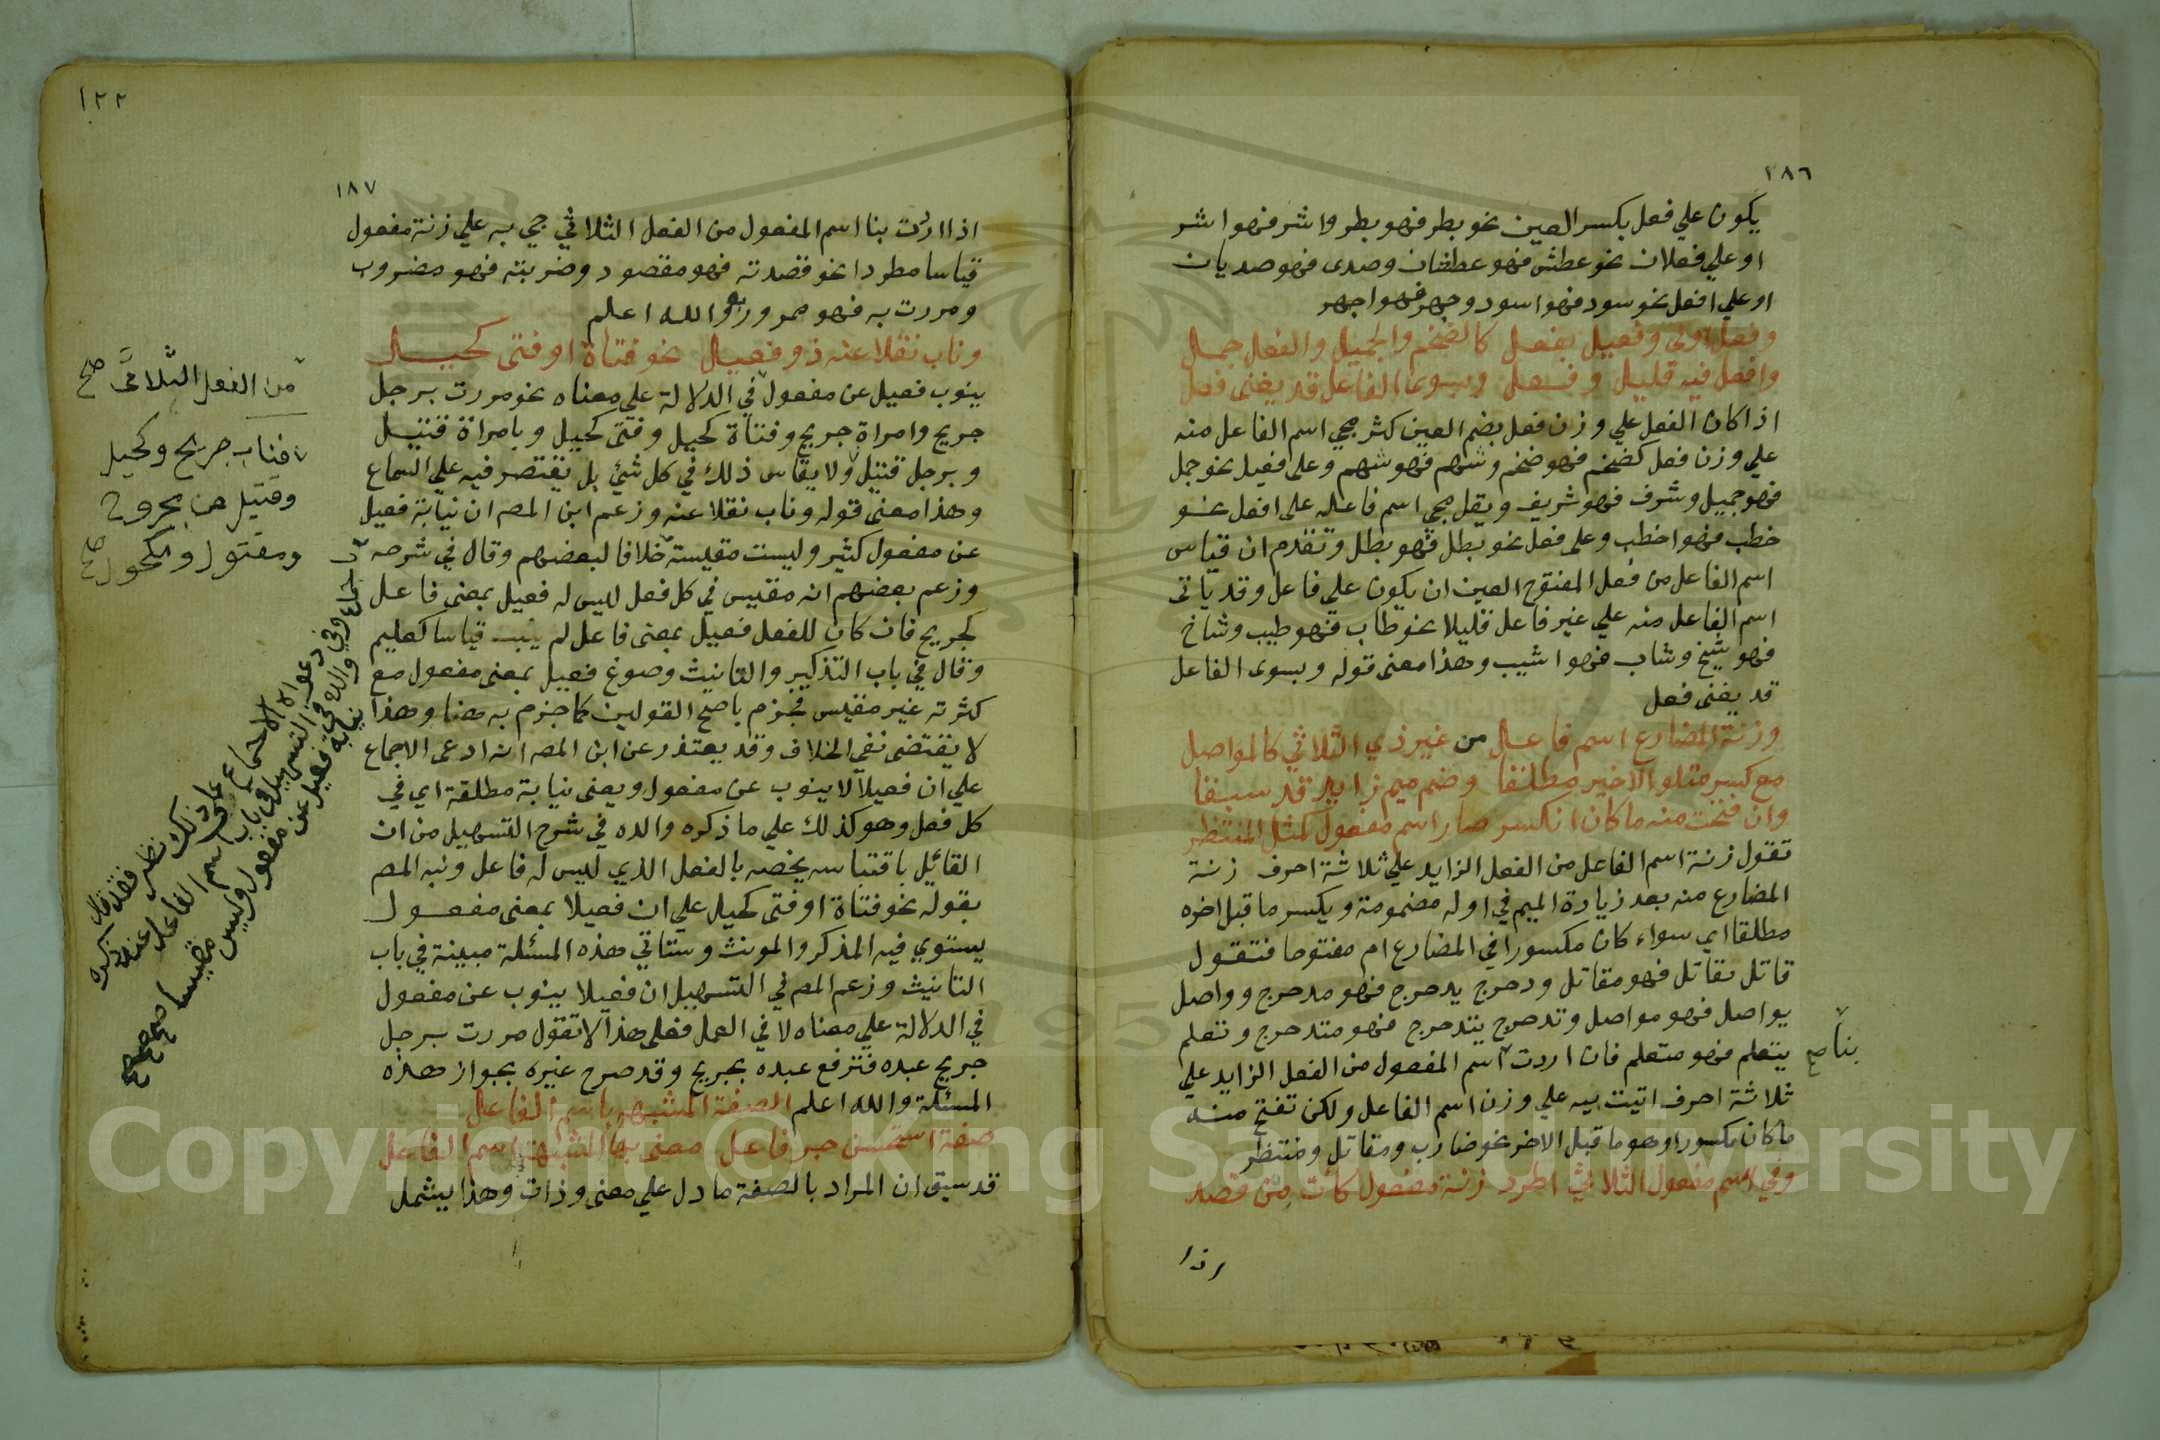 ١٨٦
يكون علي فعل بكسر العين نحو بطر فهو بطر واشر فهو اشر
او علي فعلان نحو عطش فهو عطشان وصدى فهو صديان
او علي افعل نحو سود فهو اسود وجهر فهو اجهر
وفعل اولى وفعيل بفعل كالضخم والجميل والفعل جمل
وافعل فيه قليل وفعل وبسوى الفاعل قد يغنى فعل
اذا كان الفعل علي وزن فعل بضم العين كثر مجي اسم الفاعل منه
علي وزن فعل كضخم فهو ضخم وشهم فهو شهم وعلى فعيل نحو جمل
فهو جميل وشرف فهو شريف ويقل مجي اسم فاعله على افعل نحو
خطب فهو اخطب وعلى فعل نحو بطل فهو بطل وتقدم ان قياس
اسم الفاعل من فعل المفتوح العين ان يكون علي فاعل وقد ياتى
اسم الفاعل منه علي غير فاعل قليلا نحو طاب فهو طيب وشاخ
فهو شيخ وشاب فهو اشيب وهذا معنى قوله وبسوى الفاعل
قد يغنى فعل
وزنة المضارع اسم فاعل من غير ذي الثلاثي كالمواصل
مع كسر متلو الاخير مطلقا وضم ميم زايد قد سبقا
وان فتحت منه ما كان انكسر صار اسم مفعول كمثل المنتظر
تقول زنة اسم الفاعل من الفعل الزايد علي ثلاثة احرف زنة
المضارع منه بعد زيادة الميم في اوله مضمومة ويكسر ما قبل اخره
مطلقا اي سواء كان مكسورا في المضارع ام مفتوحا فتقول
قاتل يقاتل فهو مقاتل ودحرج يدحرج فهو مدحرج وواصل
يواصل فهو مواصل وتدحرج يتدحرج فهو متدحرج وتعلم
يتعلم فهو متعلم فان اردت اسم المفعول من الفعل الزايد علي
بنا صح
ثلاثة احرف اتيت به علي وزن اسم الفاعل ولكن تفتح منه
ما كان مكسورا وهو ما قبل الاخر نحو ضارب ومقاتل ومنتظر
وفي اسم مفعول الثلاثي اطرد زنة مفعول كآت من قصد
اذا
١٢٢
١٨٧
اذا اردت بنا اسم المفعول من الفعل الثلاثي جي به علي زنة مفعول
قياسا مطردا نحو قصدته فهو مقصود وضربته فهو مضروب
ومررت به فهو ممرور به والله اعلم
وناب نقلا عنه ذو فعيل نحو فتاة او فتى كحيل
ينوب فعيل عن مفعول في الدلالة علي معناه نحو مررت برجل
جريح وامراة جريح وفتاة كحيل وفتى كحيل وبامراة قتيل
وبرجل قتيل ولا يقاس ذلك في كل شئ بل يقتصر فيه علي السماع
وهذا معنى قوله وناب نقلا عنه وزعم ابن المص ان نيابة فعيل
عن مفعول كثير وليست مقيسة خلافا لبعضهم وقال في شرحه
وزعم بعضهم انه مقيس في كل فعل ليس له فعيل بمعنى فاعل
كجريح فان كان للفعل فعيل بمعنى فاعل لم ينب قياسا كعليم
وقال في باب التذكير والتانيث وصوغ فعيل بمعنى مفعول مع
كثرته غير مقيس فجزم باصح القولين كما جزم به هنا وهذا
لا يقتضى نفي الخلاف وقد يعتذر عن ابن المصه انه ادعى الاجماع
علي ان فعيلا لا ينوب عن مفعول ويعنى نيابة مطلقة اي في
كل فعل وهو كذلك علي ما ذكره والده في شرح التسهيل من ان
القائيل باقتياسه يخصه بالفعل الذي ليس له فاعل ونبه المص
بقوله نحو فتاة او فتى كحيل علي ان فعيلا بمعنى مفعول
يستوي فيه المذكر والمونث وستاتي هذه المسئلة مبينة في باب
التانيث وزعم المص في التسهيل ان فعيلا ينوب عن مفعول
في الدلالة علي معناه لا في العمل فعلى هذا لا تقول مررت برجل
جريح عبده فترفع عبده بجريح وقد صرح غيره بجواز هذه
المسئلة والله اعلم الصفة المشبهه باسم الفاعل
صفة استحسن جر فاعل معنى بها المشبهة اسم الفاعل
قد سبق ان المراد بالصفة ما دل علي معنى وذات وهذا يشمل
من الفعل الثلاثي صح
فناب جريح وكحيل
وقتيل عن مجروح
ومقتول ومكحول صح
الاجماع على ذلك نظر فقد قال
والده في التسهيل في باب اسم الفاعل عند ذكره
نيابة فعيل عن مفعول وليس مقيسا صح
Copyright © King Saud University